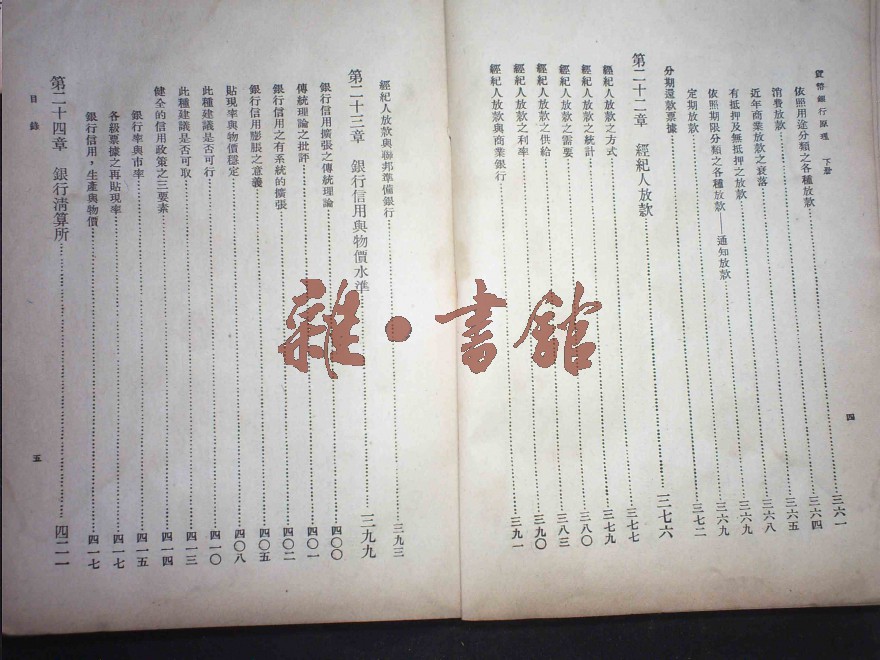 貨幣銀行原理 下册
四
依照用途分類之各種放款……三六一
消費放款……三六四
近年商業放款之衰落……三六五
有抵押及無抵押之放款……三六八
依照期限分類之各種放款——通知放款……三六九
定期放款……三六九
分期還款票據……三七二
第二十二章 經紀人放款……三七六
經紀人放款之方式……三七七
經紀人放款之統計……三七九
經紀人放款之需要……三八〇
經紀人放款之供給……三八三
經紀人放款之利率……三九〇
經紀人放款與商業銀行……三九一
經紀人放款與聯邦準備銀行……三九三
第二十三章 銀行信用與物價水準……三九九
銀行信用擴張之傳統理論……四〇〇
傳統理論之批評……四〇一
銀行信用之有系統的擴張……四〇二
銀行信用膨脹之意義……四〇五
貼現率與物價穩定……四〇八
此種建議是否可行……四一〇
此種建議是否可取……四一三
健全的信用政策之三要素……四一四
銀行率與市率……四一五
各級票據之再貼現率……四一七
銀行信用，生產與物價……四一七
第二十四章 銀行清算所……四二一
目錄
五
雜·書館